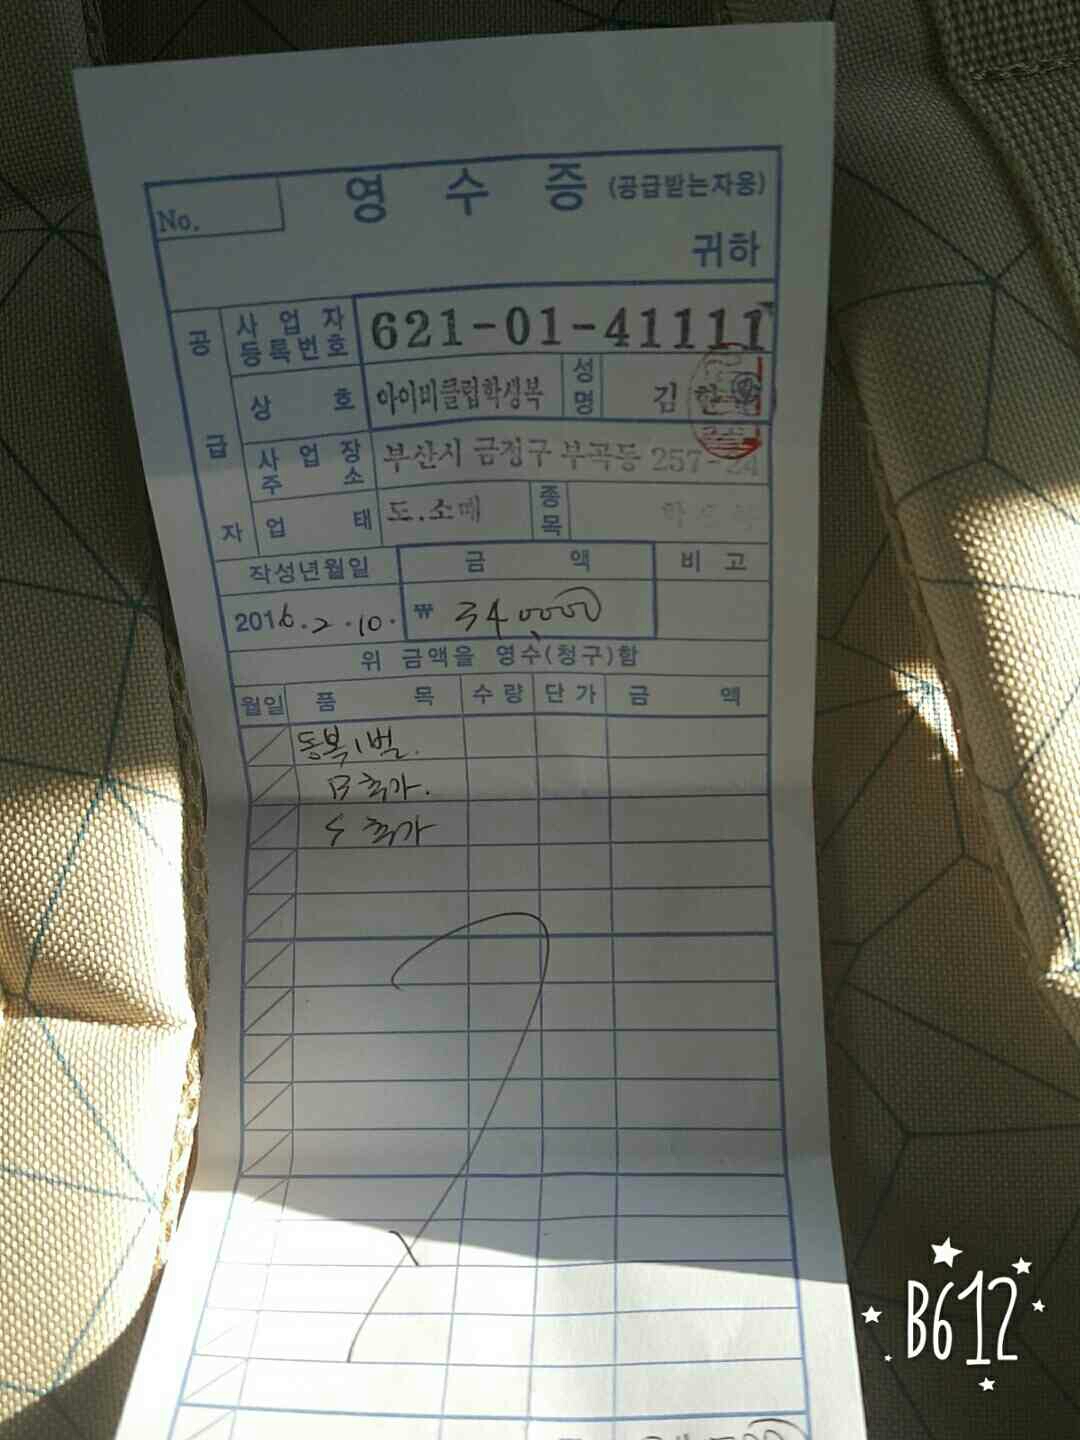 영 수 증 (공급받는자용)
No.
귀하
공급자
사업자등록번호 621-01-41111
상 호 아이비클럽학생복 성명 김 한
사업장주소 부산시 금정구 부곡동 257-24
업 태 도.소매 종목
작성년월일 금 액 비 고
2016.2.10. ₩ 340,000
위 금액을 영수(청구)함
월일 품 목 수 량 단 가 금 액
동복1벌.
B 추가.
S 추가
B612